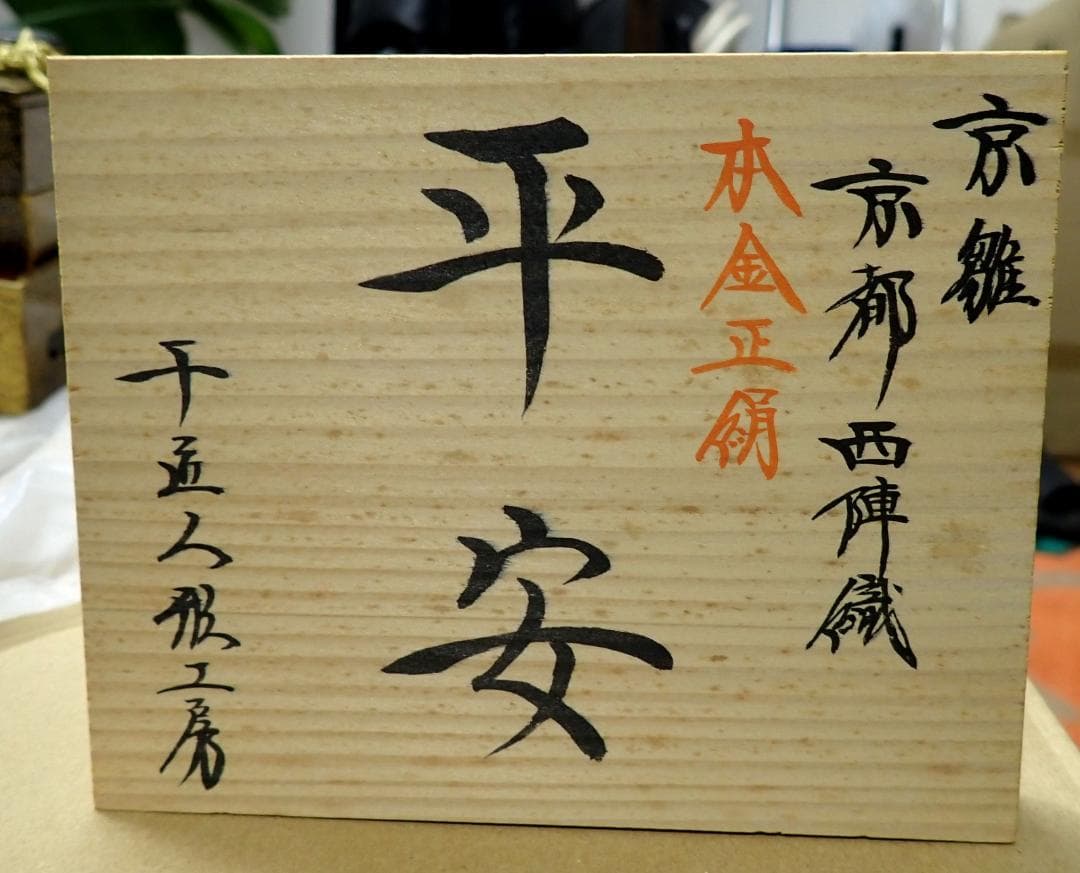 京雛
京都西陣織
本金正絹
平安
千匠人形工房